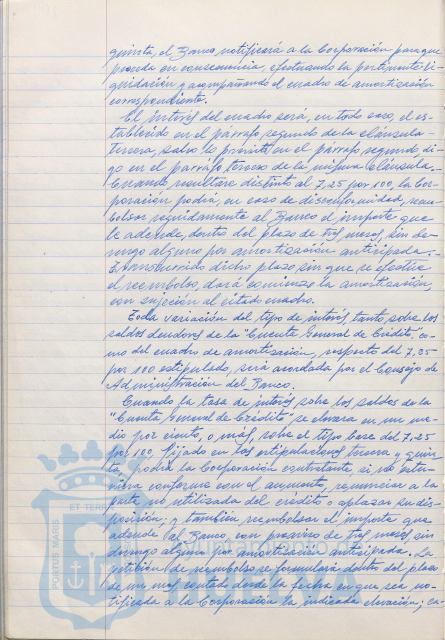 quinta, el Banco notificará a la Corporación para que
proceda en consecuencia, efectuando la pertinente li-
quidación y acompañando el cuadro de amortización
correspondiente.
El interés del cuadro será, en todo caso, el es-
tablecido en el párrafo segundo de la cláusula
Tercera, salvo lo previsto en el párrafo segundo di-
go en el párrafo tercero de la misma cláusula.-
Cuando resultare distinto al 7,25 por 100, la Cor-
poración podrá, en caso de disconformidad, reem-
bolsar seguidamente al Banco el importe que
le adeude, dentro del plazo de tres meses, sin de-
vengo alguno por amortización anticipada.-
Transcurrido dicho plazo sin que se efectúe
el reembolso, dará comienzo la amortización,
con sujeción al citado cuadro.
Toda variación del tipo de interés, tanto sobre los
saldos deudores de la "Cuenta General de Crédito", co-
mo del cuadro de amortización, respecto del 7,25
por 100 estipulado, será acordada por el Consejo de
Administración del Banco.
Cuando la tasa de interés sobre los saldos de la
"Cuenta General de Crédito" se elevara en un me-
dio por ciento, o más, sobre el tipo base del 7,25
por 100, fijado en las estipulaciones tercera y quin-
ta, podrá la Corporación contratante si no estu-
viera conforme con el aumento, renunciar a la
parte no utilizada del crédito o aplazar su dis-
posición; y también reembolsar el importe que
adeude al Banco, con preaviso de tres meses, sin
devengo alguno por amortización anticipada. La
petición de reembolso se formulará dentro del plazo
de un mes contado desde la fecha en que sea no-
tificada a la Corporación la indicada elevación; ca-
PORTUS MARIS ET TERRAE